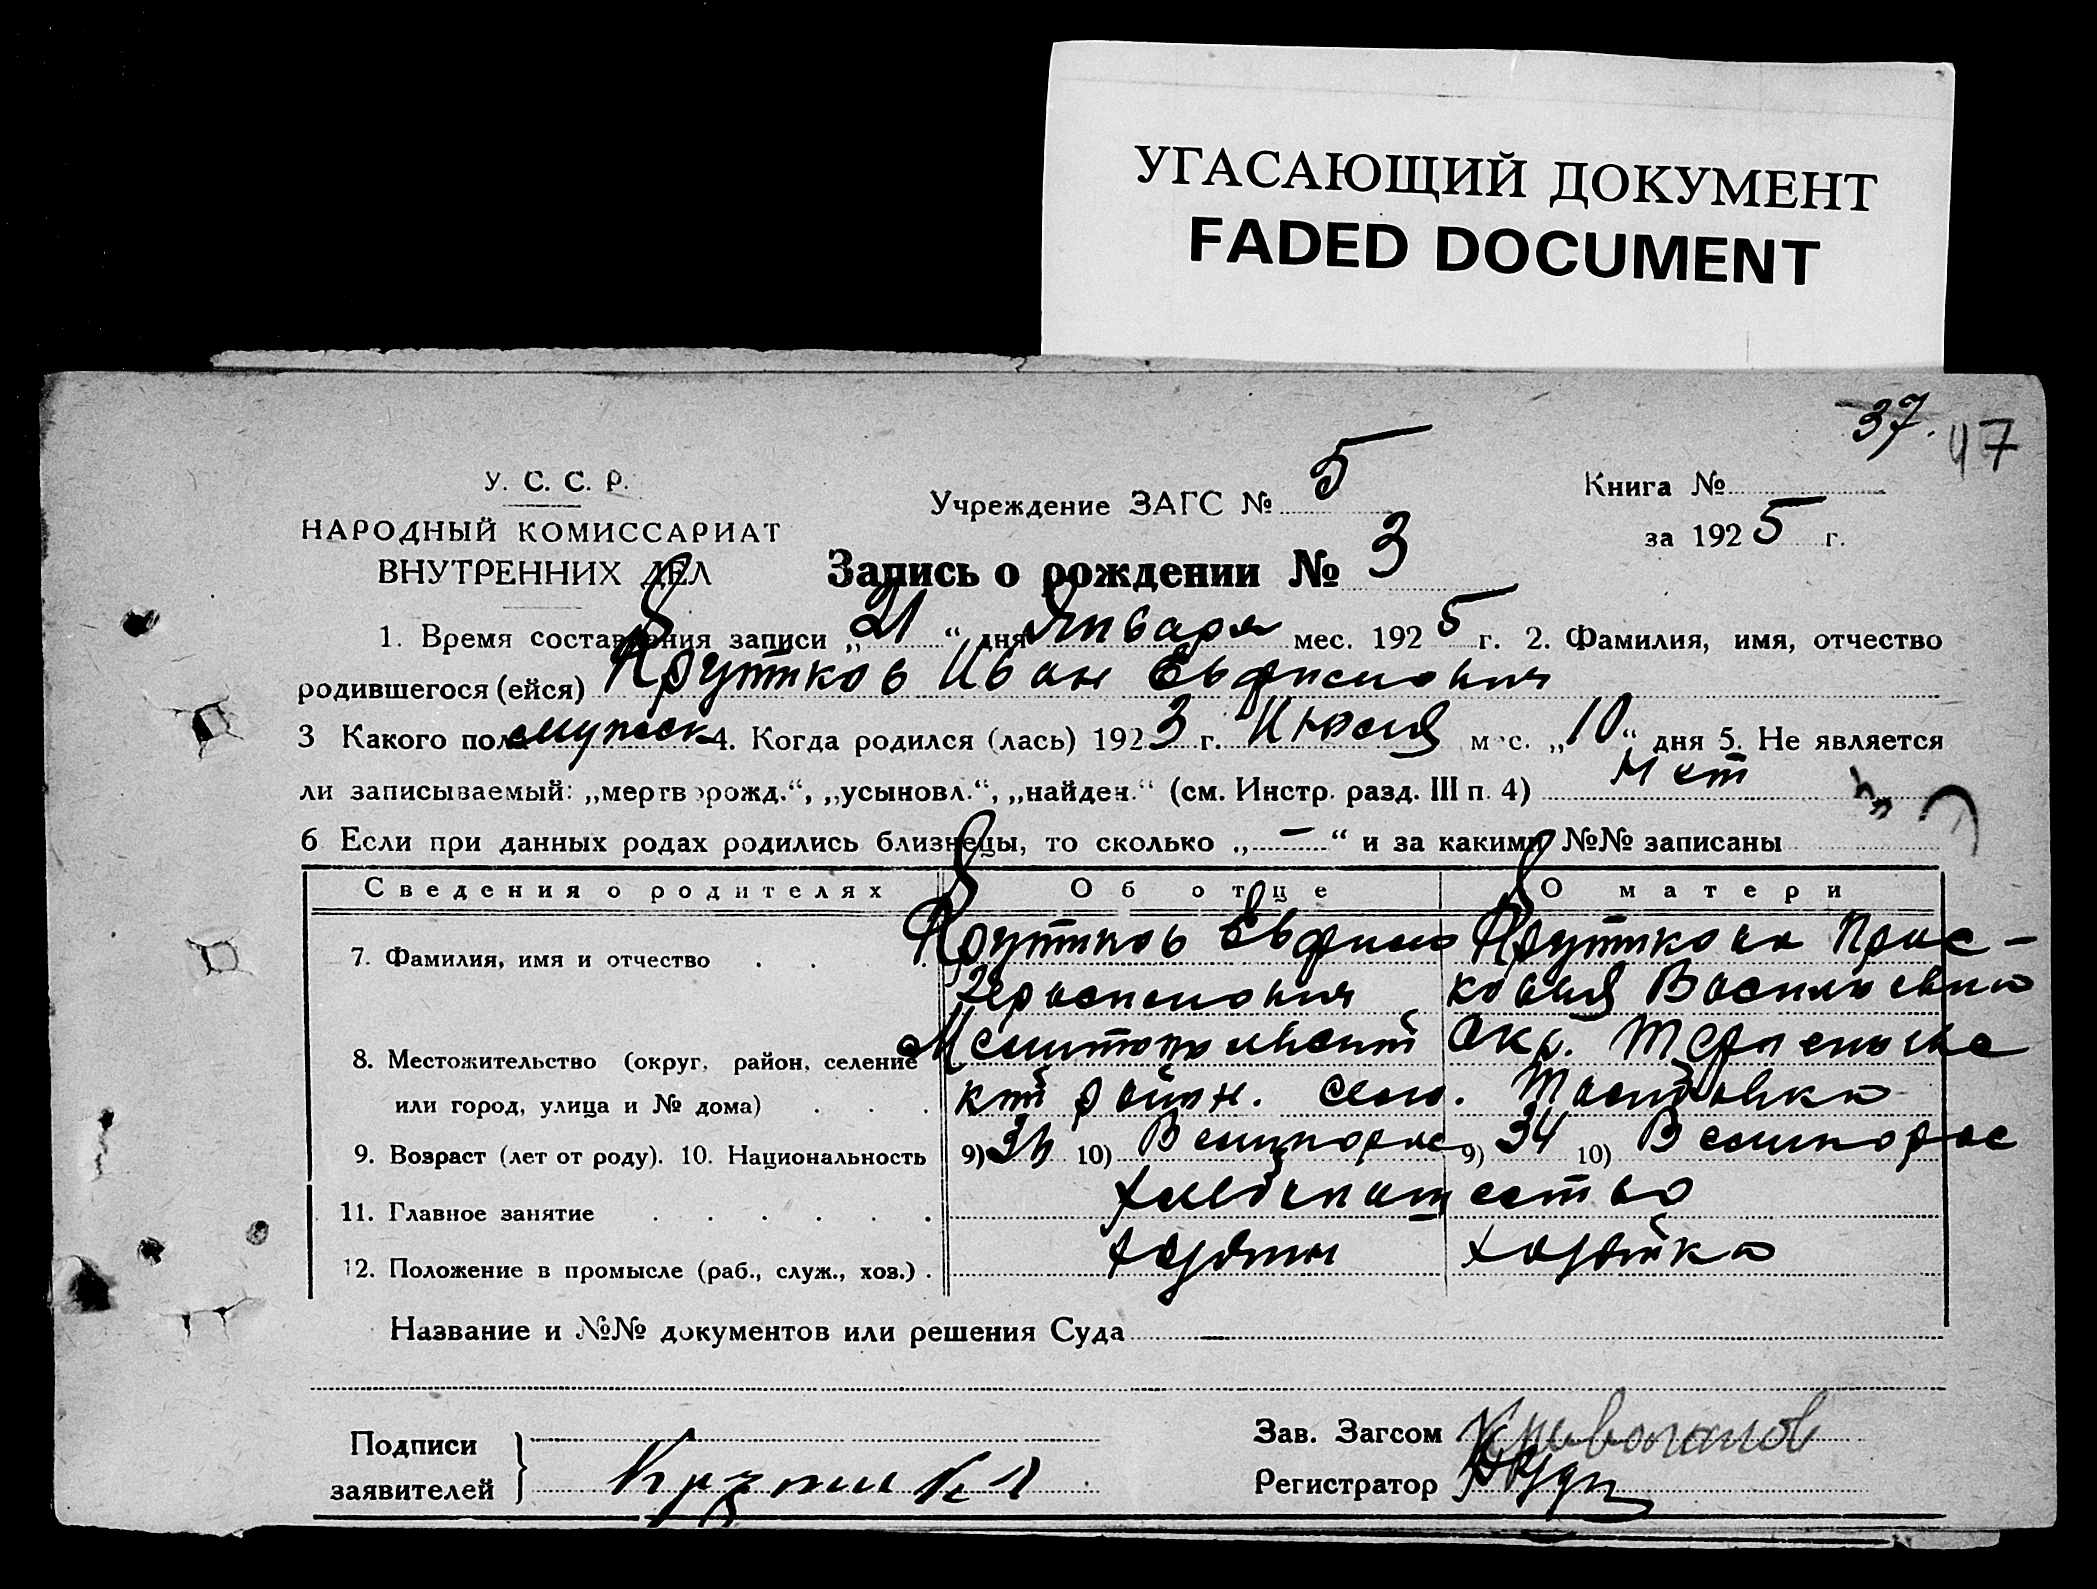 УГАСАЮЩИЙ ДОКУМЕНТ
FADED DOCUMENT
37.
47
У. С. С. Р.
НАРОДНЫЙ КОМИССАРИАТ
ВНУТРЕННИХ ДЕЛ
Учреждение ЗАГС № 5
Книга №
за 1925 г.
Запись о рождении № 3
1. Время составления записи „21“ дня Января мес. 1925 г. 2. Фамилия, имя, отчество
родившегося (ейся) Крутков Иван Евфимович
3 Какого пола мужск 4. Когда родился (лась) 1923 г. Июля мес. „10“ дня 5. Не является
ли записываемый: „мертворожд.“, „усыновл.“, „найден.“ (см. Инстр. разд. III п. 4) Нет
6 Если при данных родах родились близнецы, то сколько „—“ и за какими №№ записаны
Сведения о родителях Об отце О матери
7. Фамилия, имя и отчество Крутков Евфим Круткова Прас-
Герасимович ковья Василиевна
8. Местожительство (округ, район, селение Мелитопольский Окр. Терпеньевс
или город, улица и № дома) кий район. село.
9. Возраст (лет от роду). 10. Национальность 9) 10) Великорос 9) 34 10) Великорос
11. Главное занятие хлебопашество
12. Положение в промысле (раб., служ., хоз.) хозяин хозяйка
Название и №№ документов или решения Суда —
Подписи
заявителей
Зав. Загсом
Регистратор